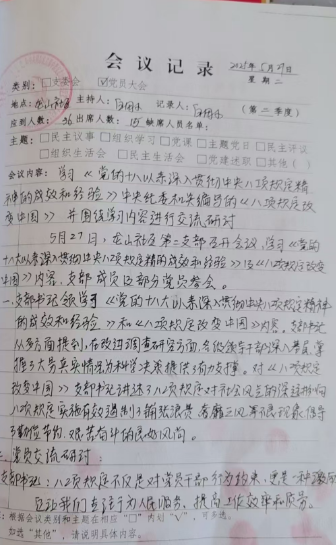 会议记录
2025年5月27日
星期二
类别：□支委会 ☑党员大会
地点：龙山社区 主持人： 记录人： （第二季度）
应到人数：36 出席人数：15 缺席人员名单：
主题：□民主议事 □组织学习 □党课 □主题党日 □民主评议
□组织生活会 □民主生活会 □党建述职 □其他（ ）
会议内容：学习《党的十八大以来深入贯彻中央八项规定精
神的成效和经验》中央党委和央编写的《八项规定改
变中国》并围绕学习内容进行交流研讨
5月27日，龙山社区第二支部召开会议，学习《党的
十八大以来深入贯彻中央八项规定精神的成效和经验》及《八项规定改变
中国》内容，支部成员及部分党员参会。
一、支部书记领学《党的十八大以来深入贯彻中央八项规定精神
的成效和经验》和《八项规定改变中国》内容，支部书记
从多方面提到，在改进调查研究方面，各级领导干部深入基层，掌
握了大量真实情况为科学决策提供了有力支撑。对《八项规定
改变中国》支部书记讲述了八项规定对社会风气的深远影响
八项规定实施有效遏制了铺张浪费、奢靡之风等不良现象，倡导
了勤俭节约、艰苦奋斗的良好风尚。
二、党员交流研讨：
支部书记：八项规定不仅是对党员干部行为约束，更是一种激励
它让我们专注于为人民服务，提高工作效率和质量。
注：根据会议类别和主题在相应“□”内划“√”，可多选。
如选“其他”，请说明具体内容。